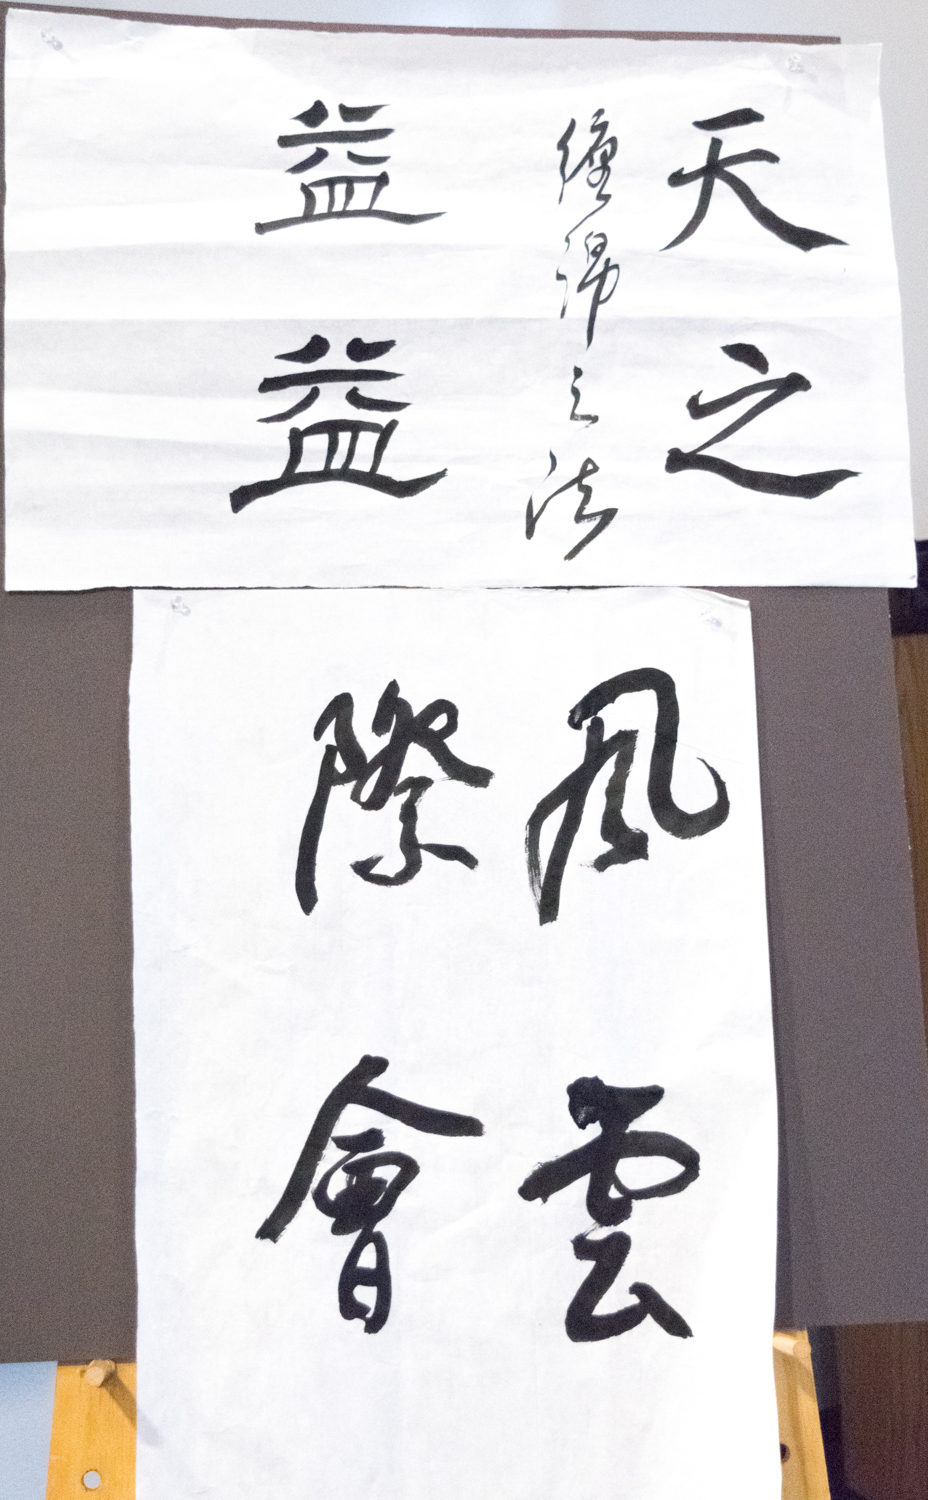 天之
纏綿之法
益益
風雲
際會